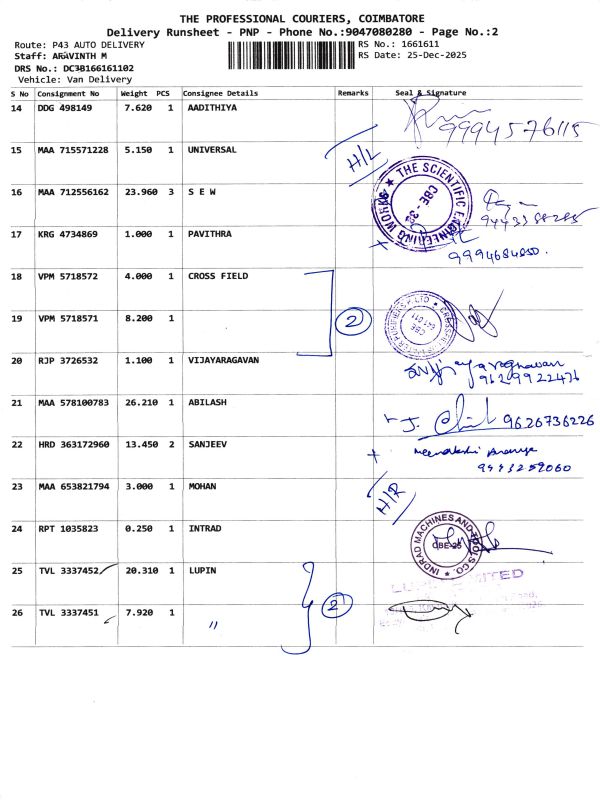 THE PROFESSIONAL COURIERS, COIMBATORE
Delivery Runsheet - PNP - Phone No.:9047080280 - Page No.:2
Route: P43 AUTO DELIVERY
RS No.: 1661611
Staff: ARAVINTH M
RS Date: 25-Dec-2025
DRS No.: DC3B166161102
Vehicle: Van Delivery
S No Consignment No Weight PCS Consignee Details Remarks Seal & Signature
14 DDG 498149 7.620 1 AADITHIYA 9994576115
15 MAA 715571228 5.150 1 UNIVERSAL H/L
16 MAA 712556162 23.960 3 S E W THE SCIENTIFIC ENGINEERING WORKS
17 KRG 4734869 1.000 1 PAVITHRA 9994684850.
18 VPM 5718572 4.000 1 CROSS FIELD
19 VPM 5718571 8.200 1 2
20 RJP 3726532 1.100 1 VIJAYARAGAVAN 9629922476
21 MAA 578100783 26.210 1 ABILASH J. 9626736226
22 HRD 363172960 13.450 2 SANJEEV
9443259060
23 MAA 653821794 3.000 1 MOHAN H/R
24 RPT 1035823 0.250 1 INTRAD INDRAD MACHINES AND TOOLS CO. CBE-25
25 TVL 3337452 20.310 1 LUPIN
26 TVL 3337451 7.920 1 " 2